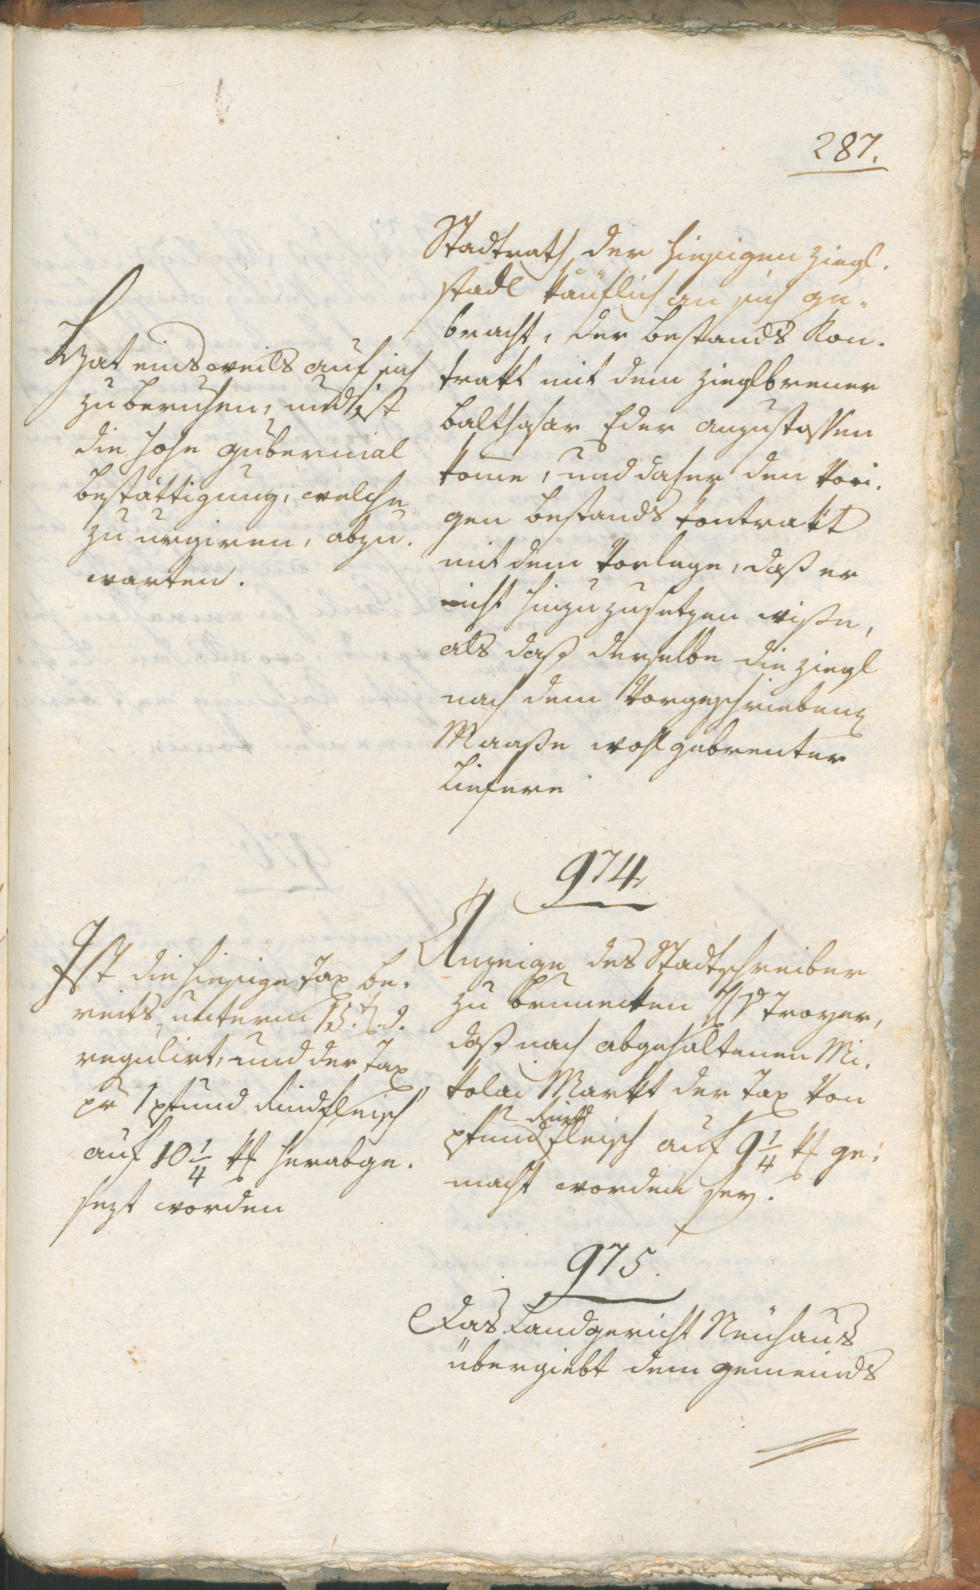 287.
Stadtrath der hiesigen Ziegl-
stadl käuflich an sich ge-
bracht, der Bestands Kon-
trakt mit dem Zieglbrener
Balthasar Eder anzustossen
kome, und daher den vori-
gen Bestands Kontrakt
mit dem Vorlege, daß er
nicht hinzuzusetzen wisse,
als daß derselbe die Ziegl
nach dem Vorgeschriebenen
Maaße wohl gebrenter
Liefere
Hat einsweils auf sich
zu beruhen, und ist
die hohe gubernial
Bestättigung, welche
zu urgiren, abzu-
warten.
974
Anzeige des Stadtschreiber
zu Brunecken Troyer,
daß nach abgehaltenen Ni-
kolai Markt der Tax von
Pfund Rind fleisch auf 9 1/4 kr ge-
macht worden sey.
Ist die hiesige Tax be-
reits unterm 13. d.
regulirt, und der Tax
pr 1 Pfund Rindfleisch
auf 10 1/4 kr herabge-
sezt worden
975.
Das Landgericht Neuhaus
übergiebt dem gemeinds